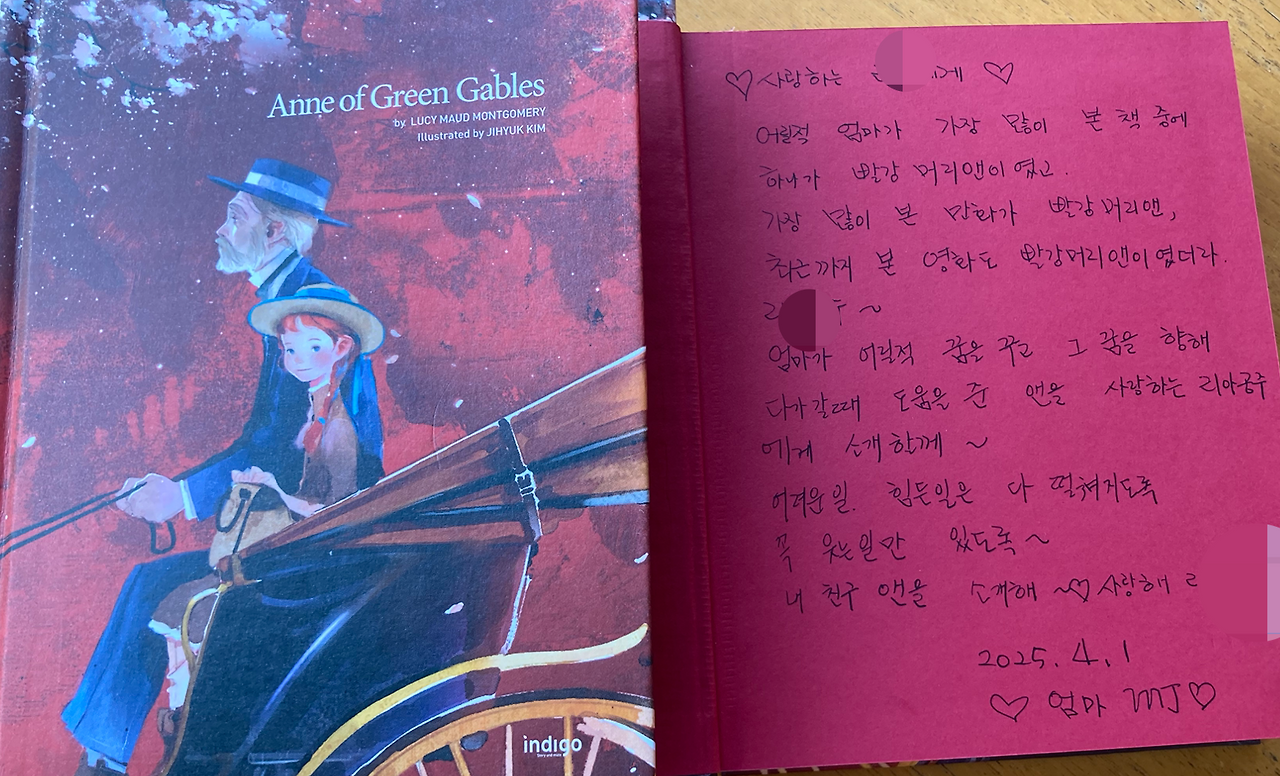 Anne of Green Gables
by. LUCY MAUD MONTGOMERY
Illustrated by JIHYUK KIM
indigo
♡ 사랑하는 에게 ♡
어릴적 엄마가 가장 많이 본 책 중에
하나가 빨강 머리앤이 였고.
가장 많이 본 만화가 빨강머리앤,
최근까지 본 영화도 빨강머리앤이였더라.
~
엄마가 어릴적 꿈을 꾸고 그 꿈을 향해
다가갈때 도움을 준 앤을 사랑하는 리아공주
에게 소개할께 ~
어려운일. 힘든일은 다 떨쳐지도록
꼭 웃는일만 있도록~
내 친구 앤을 소개해 ~♡ 사랑해
2025. 4. 1
♡ 엄마 MJ ♡